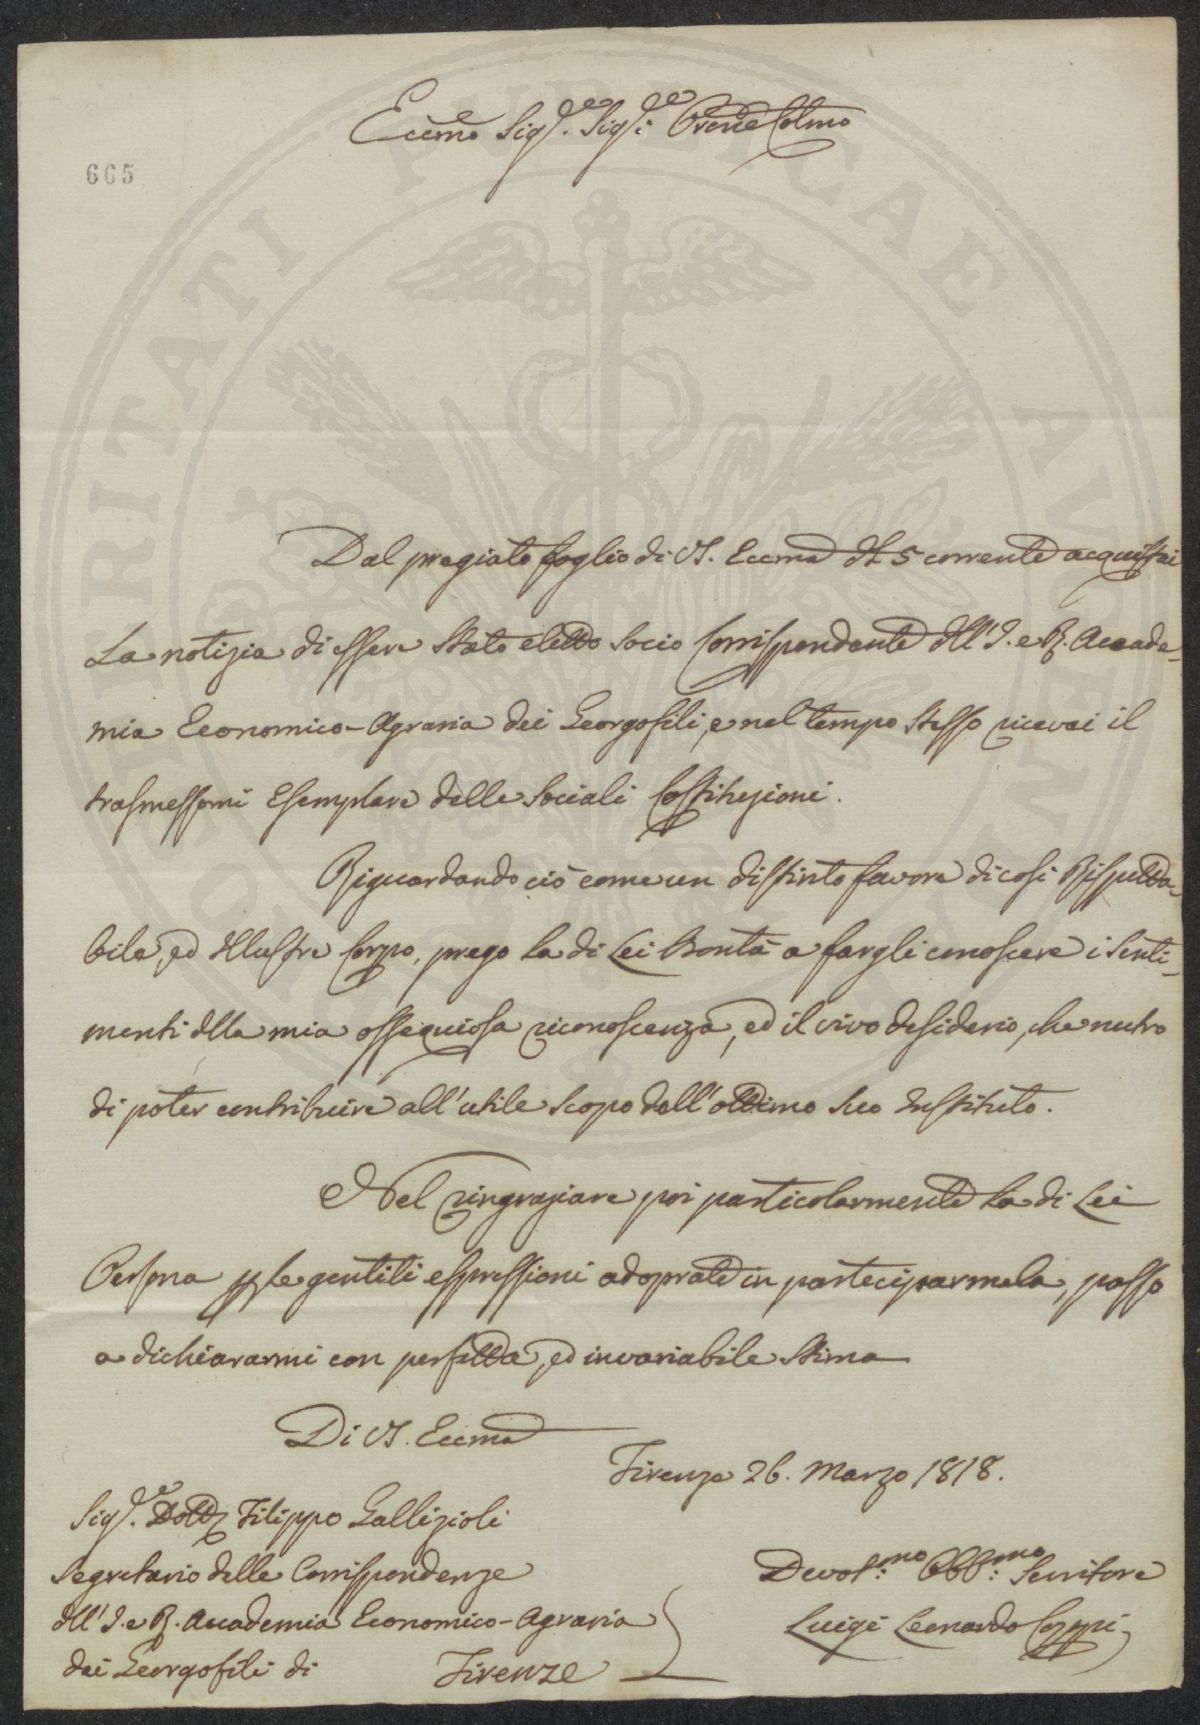 Eccmo Sigr.e Sigr.e Prone Colmo
665
Dal pregiato foglio di VS. Eccma del 5 corrente acquistai
la notizia di essere stato eletto Socio Corrispondente dell'I. e R. Accade-
mia Economico-Agraria dei Georgofili, e nel tempo stesso ricevei il
trasmessomi Esemplare delle Sociali Costituzioni.
Riguardando ciò come un distinto favore di così Rispetta-
bile, ed Illustre Corpo, prego la di Lei Bontà a fargli conoscere i senti-
menti della mia ossequiosa riconoscenza, ed il vivo desiderio, che nutro
di poter contribuire all'utile scopo dell'ottimo suo Instituto.
Nel ringraziare poi particolarmente la di Lei
Persona p le gentili espressioni adoprate in parteciparmela, passo
a dichiararmi con perfetta, ed invariabile stima
Di VS. Eccma
Firenze 26. Marzo 1818.
Sigr.e Dottr Filippo Gallizioli
Segretario delle Corrispondenze
dell'I. e R. Accademia Economico-Agraria
dei Georgofili di Firenze
Devot.mo Obb.mo Servitore
Luigi Leonardo Coppi